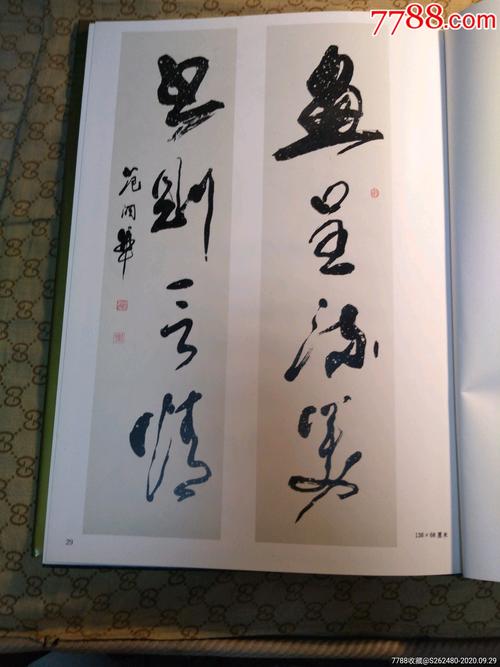 7788.com
畫呈流美
書則言情
范润華
29
138×68厘米
7788收藏@S262480-2020.09.29